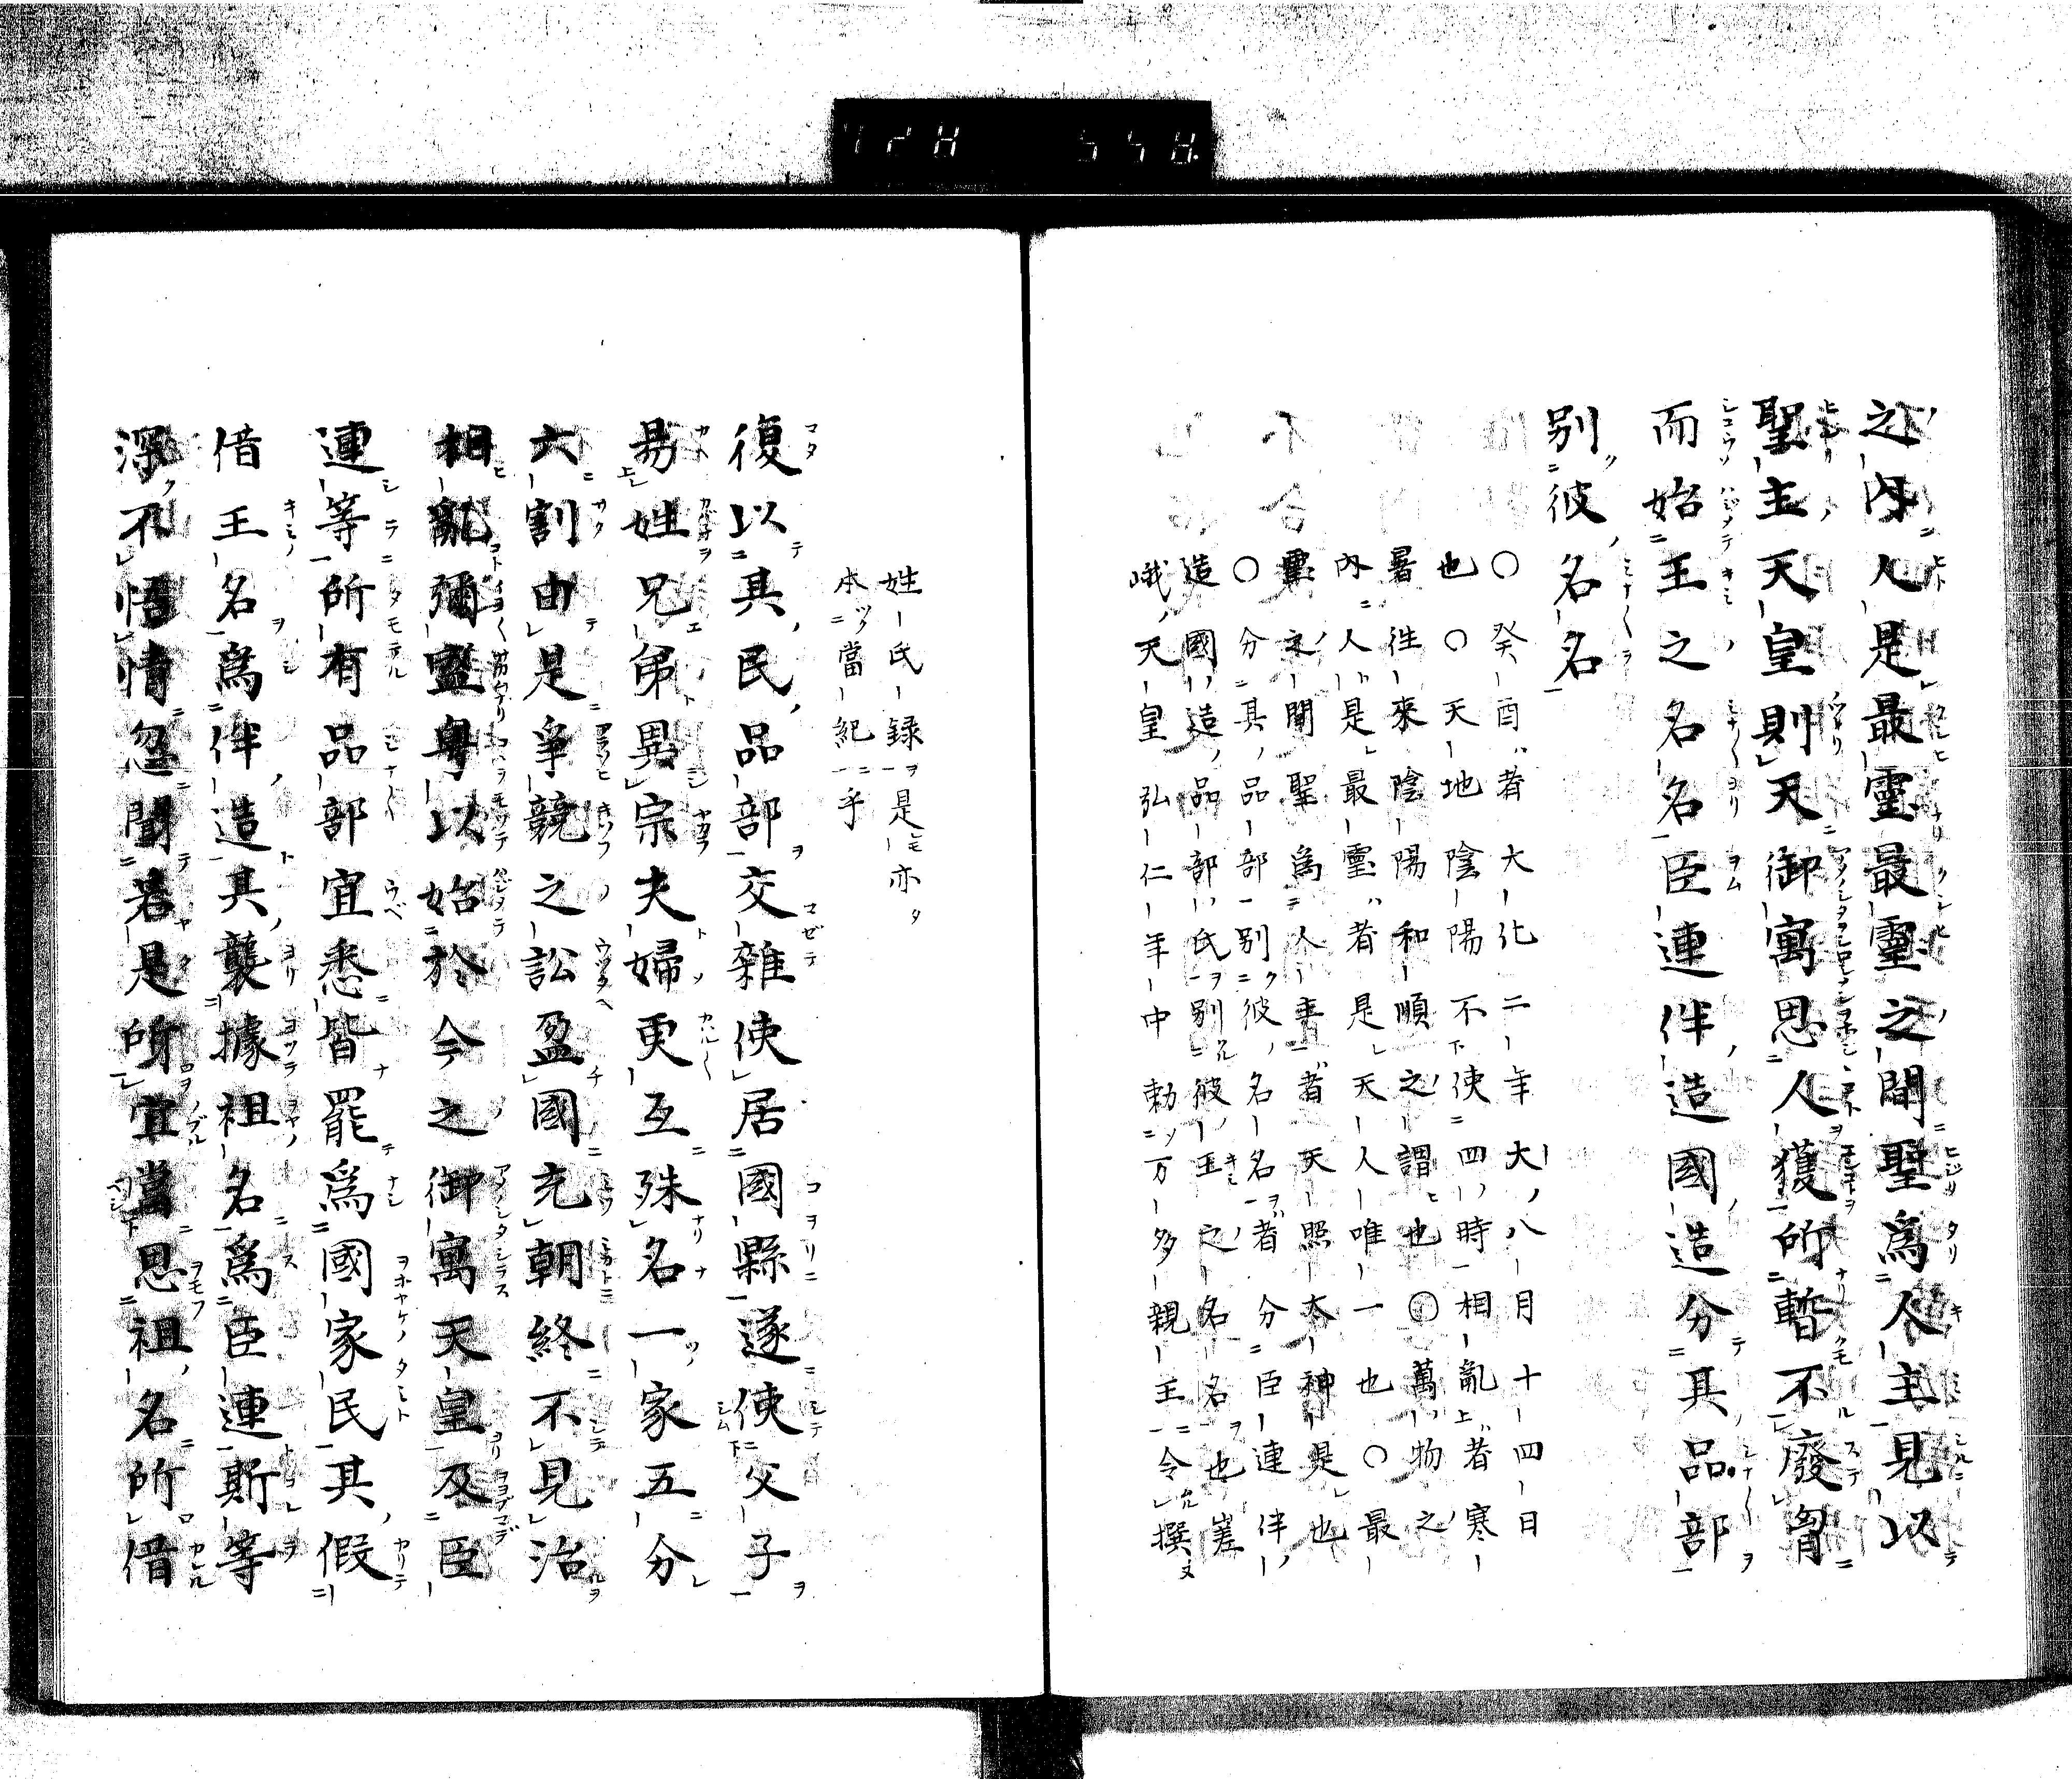 之內人是最靈最靈之間聖爲人主見以
聖主天皇則天御寓思人獲所暫不廢胷
而始王之名名臣連伴造國造分其品部
別彼名名
〇癸酉者大化二年大八月十四日
也〇天地陰陽不使四時相亂者寒
暑往來陰陽和順之謂也〇萬物之
內人是最靈者是天人唯一也〇最
靈之間聖爲人主者天照太神是也
〇分其品部別彼名名者分臣連伴
造國造品部氏別彼王之名名也嵯
峨天皇弘仁年中勅万多親王令撰
姓氏録是亦
本當紀乎
復以其民品部交雜使居國縣遂使父子
易姓兄弟異宗夫婦更互殊名一家五分
六割由是爭競之訟盈國充朝終不見治
相亂彌盛粤以始於今之御寓天皇及臣
連等所有品部宜悉皆罷爲國家民其假
借王名爲伴造其襲據祖名爲臣連斯等
深不悟情忽聞若是所宣當思祖名所借